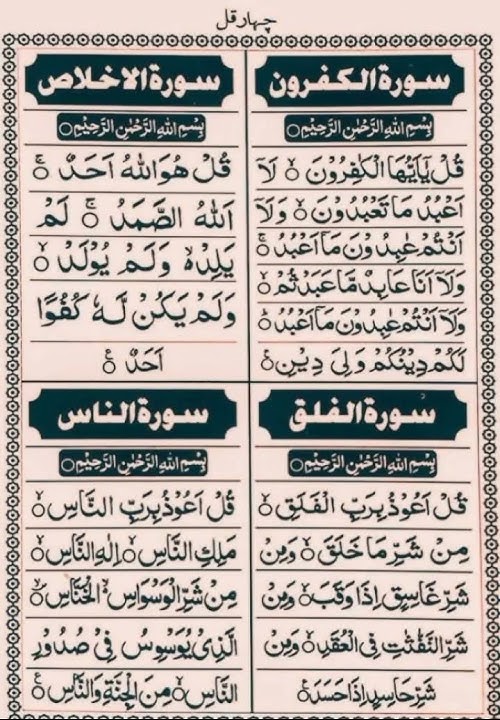 چہار قل
سورة الكفرون
بِسْمِ اللهِ الرَّحْمٰنِ الرَّحِيْمِ
قُلْ يٰۤاَيُّهَا الْكٰفِرُوْنَ ۙ لَاۤ
اَعْبُدُ مَا تَعْبُدُوْنَ ۙ وَلَاۤ
اَنْتُمْ عٰبِدُوْنَ مَاۤ اَعْبُدُ ۚ
وَلَاۤ اَنَا عَابِدٌ مَّا عَبَدْتُّمْ ۙ
وَلَاۤ اَنْتُمْ عٰبِدُوْنَ مَاۤ اَعْبُدُ ؕ
لَكُمْ دِيْنُكُمْ وَلِيَ دِيْنِ
سورة الاخلاص
بِسْمِ اللهِ الرَّحْمٰنِ الرَّحِيْمِ
قُلْ هُوَ اللهُ اَحَدٌ ۚ
اَللهُ الصَّمَدُ ۚ لَمْ
يَلِدْ ۙ وَلَمْ يُوْلَدْ ۙ
وَلَمْ يَكُنْ لَّهٗ كُفُوًا
اَحَدٌ
سورة الفلق
بِسْمِ اللهِ الرَّحْمٰنِ الرَّحِيْمِ
قُلْ اَعُوْذُ بِرَبِّ الْفَلَقِ ۙ
مِنْ شَرِّ مَا خَلَقَ ۙ وَمِنْ
شَرِّ غَاسِقٍ اِذَا وَقَبَ ۙ وَمِنْ
شَرِّ النَّفّٰثٰتِ فِى الْعُقَدِ ۙ وَمِنْ
شَرِّ حَاسِدٍ اِذَا حَسَدَ
سورة الناس
بِسْمِ اللهِ الرَّحْمٰنِ الرَّحِيْمِ
قُلْ اَعُوْذُ بِرَبِّ النَّاسِ ۙ
مَلِكِ النَّاسِ ۙ اِلٰهِ النَّاسِ ۙ
مِنْ شَرِّ الْوَسْوَاسِ ۙ الْخَنَّاسِ ۙ
الَّذِىْ يُوَسْوِسُ فِىْ صُدُوْرِ
النَّاسِ ۙ مِنَ الْجِنَّةِ وَالنَّاسِ